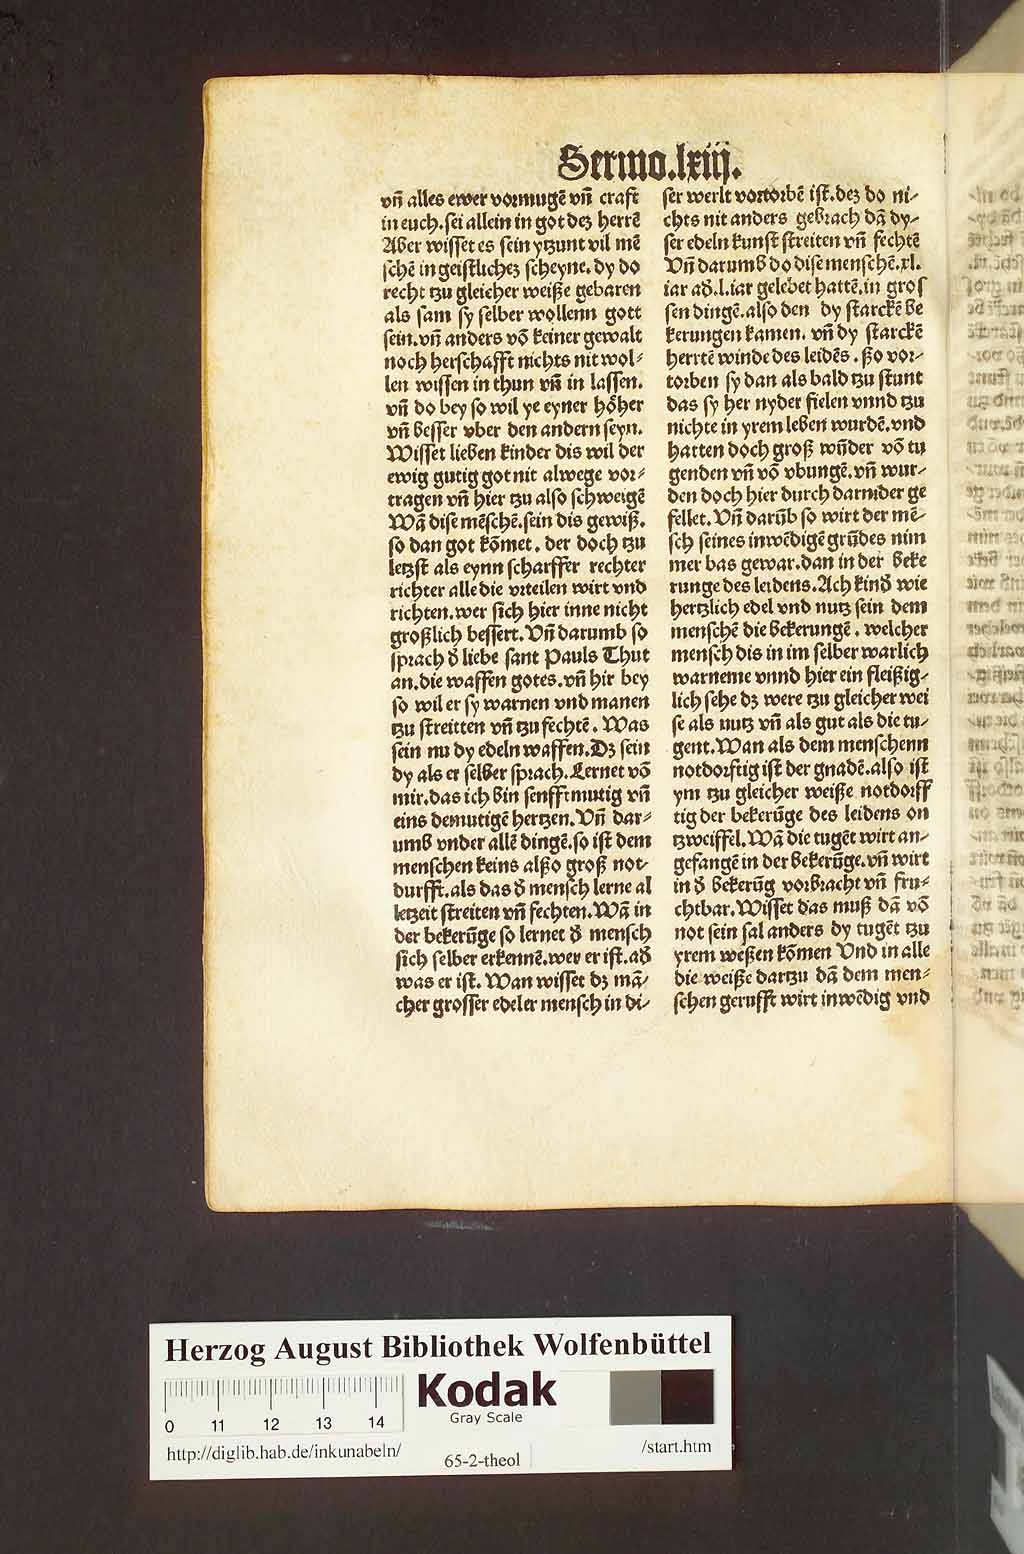 Sermo.lxiij.
vñ alles ewer vormugē vñ craft
in euch.sei allein in got deʒ herrē
Aber wisset es sein ytzunt vil mē
schē in geistlicheʒ scheyne. dy do
recht tzu gleicher weiße gebaren
als sam sy selber wollenn gott
sein.vñ anders vō keiner gewalt
noch herschafft nichts nit wol⸗
len wissen in thun vñ in lassen.
vñ do bey so wil ye eyner hoͤher
vñ besser vber den andern seyn.
Wisset lieben kinder dis wil der
ewig gutig got nit alwege vor⸗
tragen vñ hier tzu also schweigē
Wā dise mēschē.sein dis gewiß.
so dan got kōmet. der doch tzu
letzst als eynn scharffer rechter
richter alle die vrteilen wirt vnd
richten.wer sich hier inne nicht
großlich bessert.Vñ darumb so
sprach d̕ liebe sant Pauls Thut
an.die waffen gotes.vñ hir bey
so wil er sy warnen vnd manen
tzu streitten vñ tzu fechtē. Was
sein nu dy edeln waffen.Dʒ sein
dy als er selber sprach.Lernet vō
mir.das ich bin senfftmutig vñ
eins demutigē hertzen.Vñ dar⸗
umb vnder allē dingē.so ist dem
menschen keins alßo groß not⸗
durfft.als das d̕ mensch lerne al
letzeit streiten vñ fechten.Wā in
der bekerūge so lernet d̕ mensch
sich selber erkennē.wer er ist.ad̕
was er ist. Wan wisset dʒ mā⸗
cher grosser edeler mensch in di⸗
ser werlt vortorbē ist.deʒ do ni⸗
chts nit anders gebrach dā dy⸗
ser edeln kunst streiten vñ fechtē
Vñ darumb do dise menschē.xl.
iar ad̕.l.iar gelebet hattē.in gros
sen dingē.also den dy starckē be
kerungen kamen. vñ dy starckē
herrtē winde des leidēs. ßo vor⸗
torben sy dan als bald tzu stunt
das sy her nyder fielen vnnd tzu
nichte in yrem leben wurdē.vnd
hatten doch groß wūder vō tu
genden vñ vō vbungē.vñ wur⸗
den doch hier durch darnider ge
fellet.Vñ darūb so wirt der mē⸗
sch seines inwēdigē grūdes nim
mer bas gewar.dan in der beke
runge des leidens.Ach kind̕ wie
hertzlich edel vnd nutz sein dem
menschē die bekerungē. welcher
mensch dis in im selber warlich
warneme vnnd hier ein fleißig⸗
lich sehe dʒ were tzu gleicher wei
se als nutz vñ als gut als die tu⸗
gent.Wan als dem menschenn
notdorftig ist der gnadē.also ist
ym tzu gleicher weiße notdorff
tig der bekerūge des leidens on
tzweiffel.Wā die tugēt wirt an⸗
gefangē in der bekerūge.vñ wirt
in d̕ bekerūg vorbracht vñ fru⸗
chtbar.Wisset das muß dā vō
not sein sal anders dy tugēt tzu
yrem weßen kōmen Vnd in alle
die weiße dartzu dā dem men⸗
schen gerufft wirt inwēdig vnd
Herzog August Bibliothek Wolfenbüttel
0 11 12 13 14
Kodak
Gray Scale
http://diglib.hab.de/inkunabeln/
65-2-theol
/start.htm